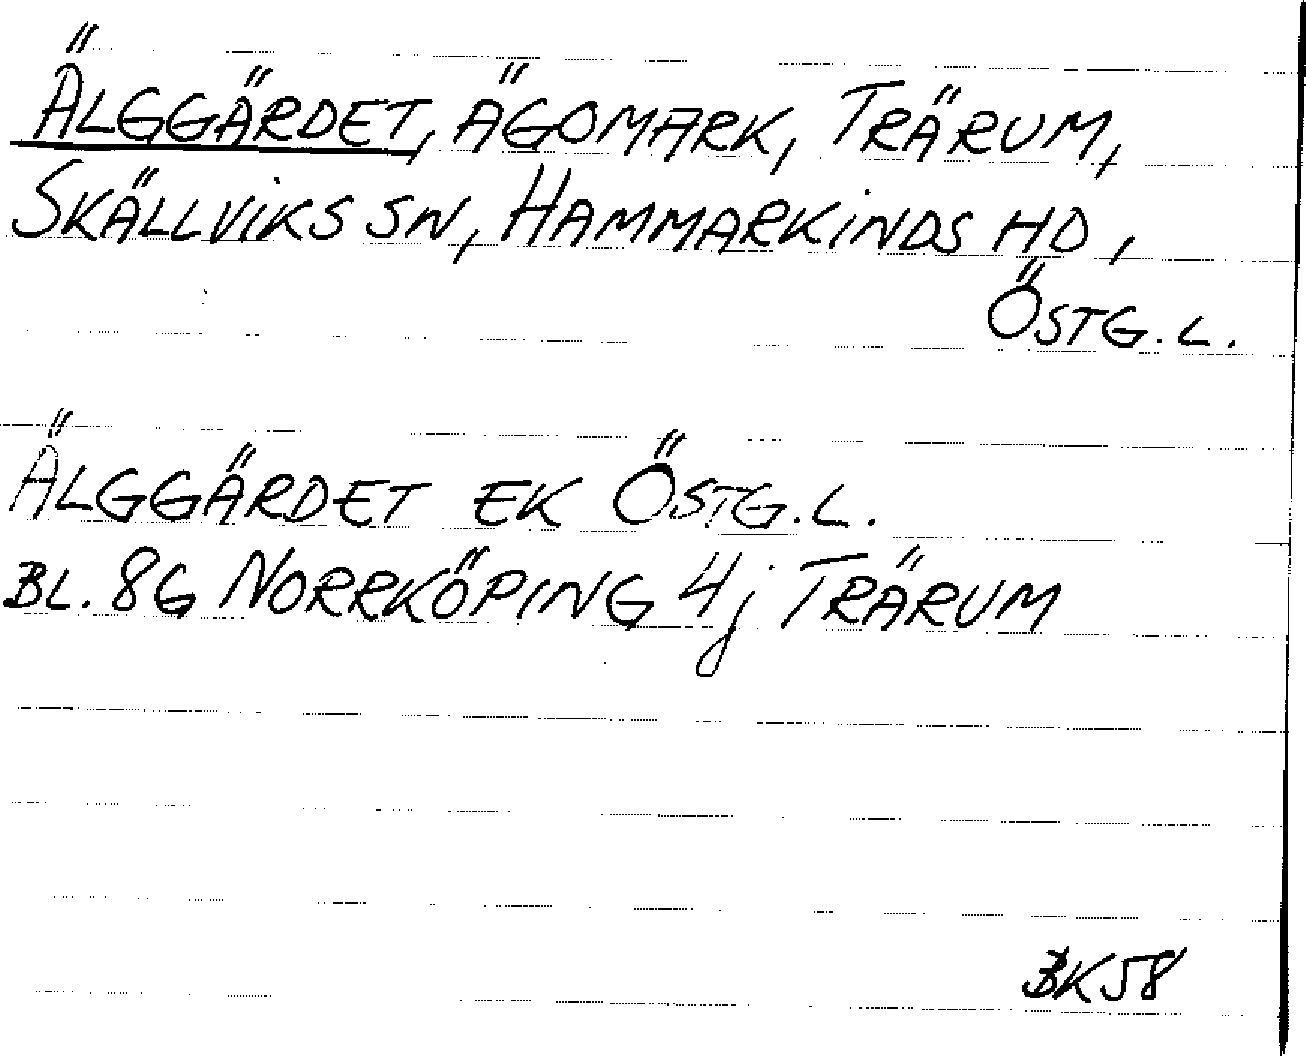 ÄLGGÄRDET, ÄGOMARK, TRÄRUM,
SKÄLLVIKS SN, HAMMARKINDS HD,
ÖSTG. L.
ÄLGGÄRDET EK ÖSTG. L.
BL. 8G NORRKÖPING 4j TRÄRUM
BK58